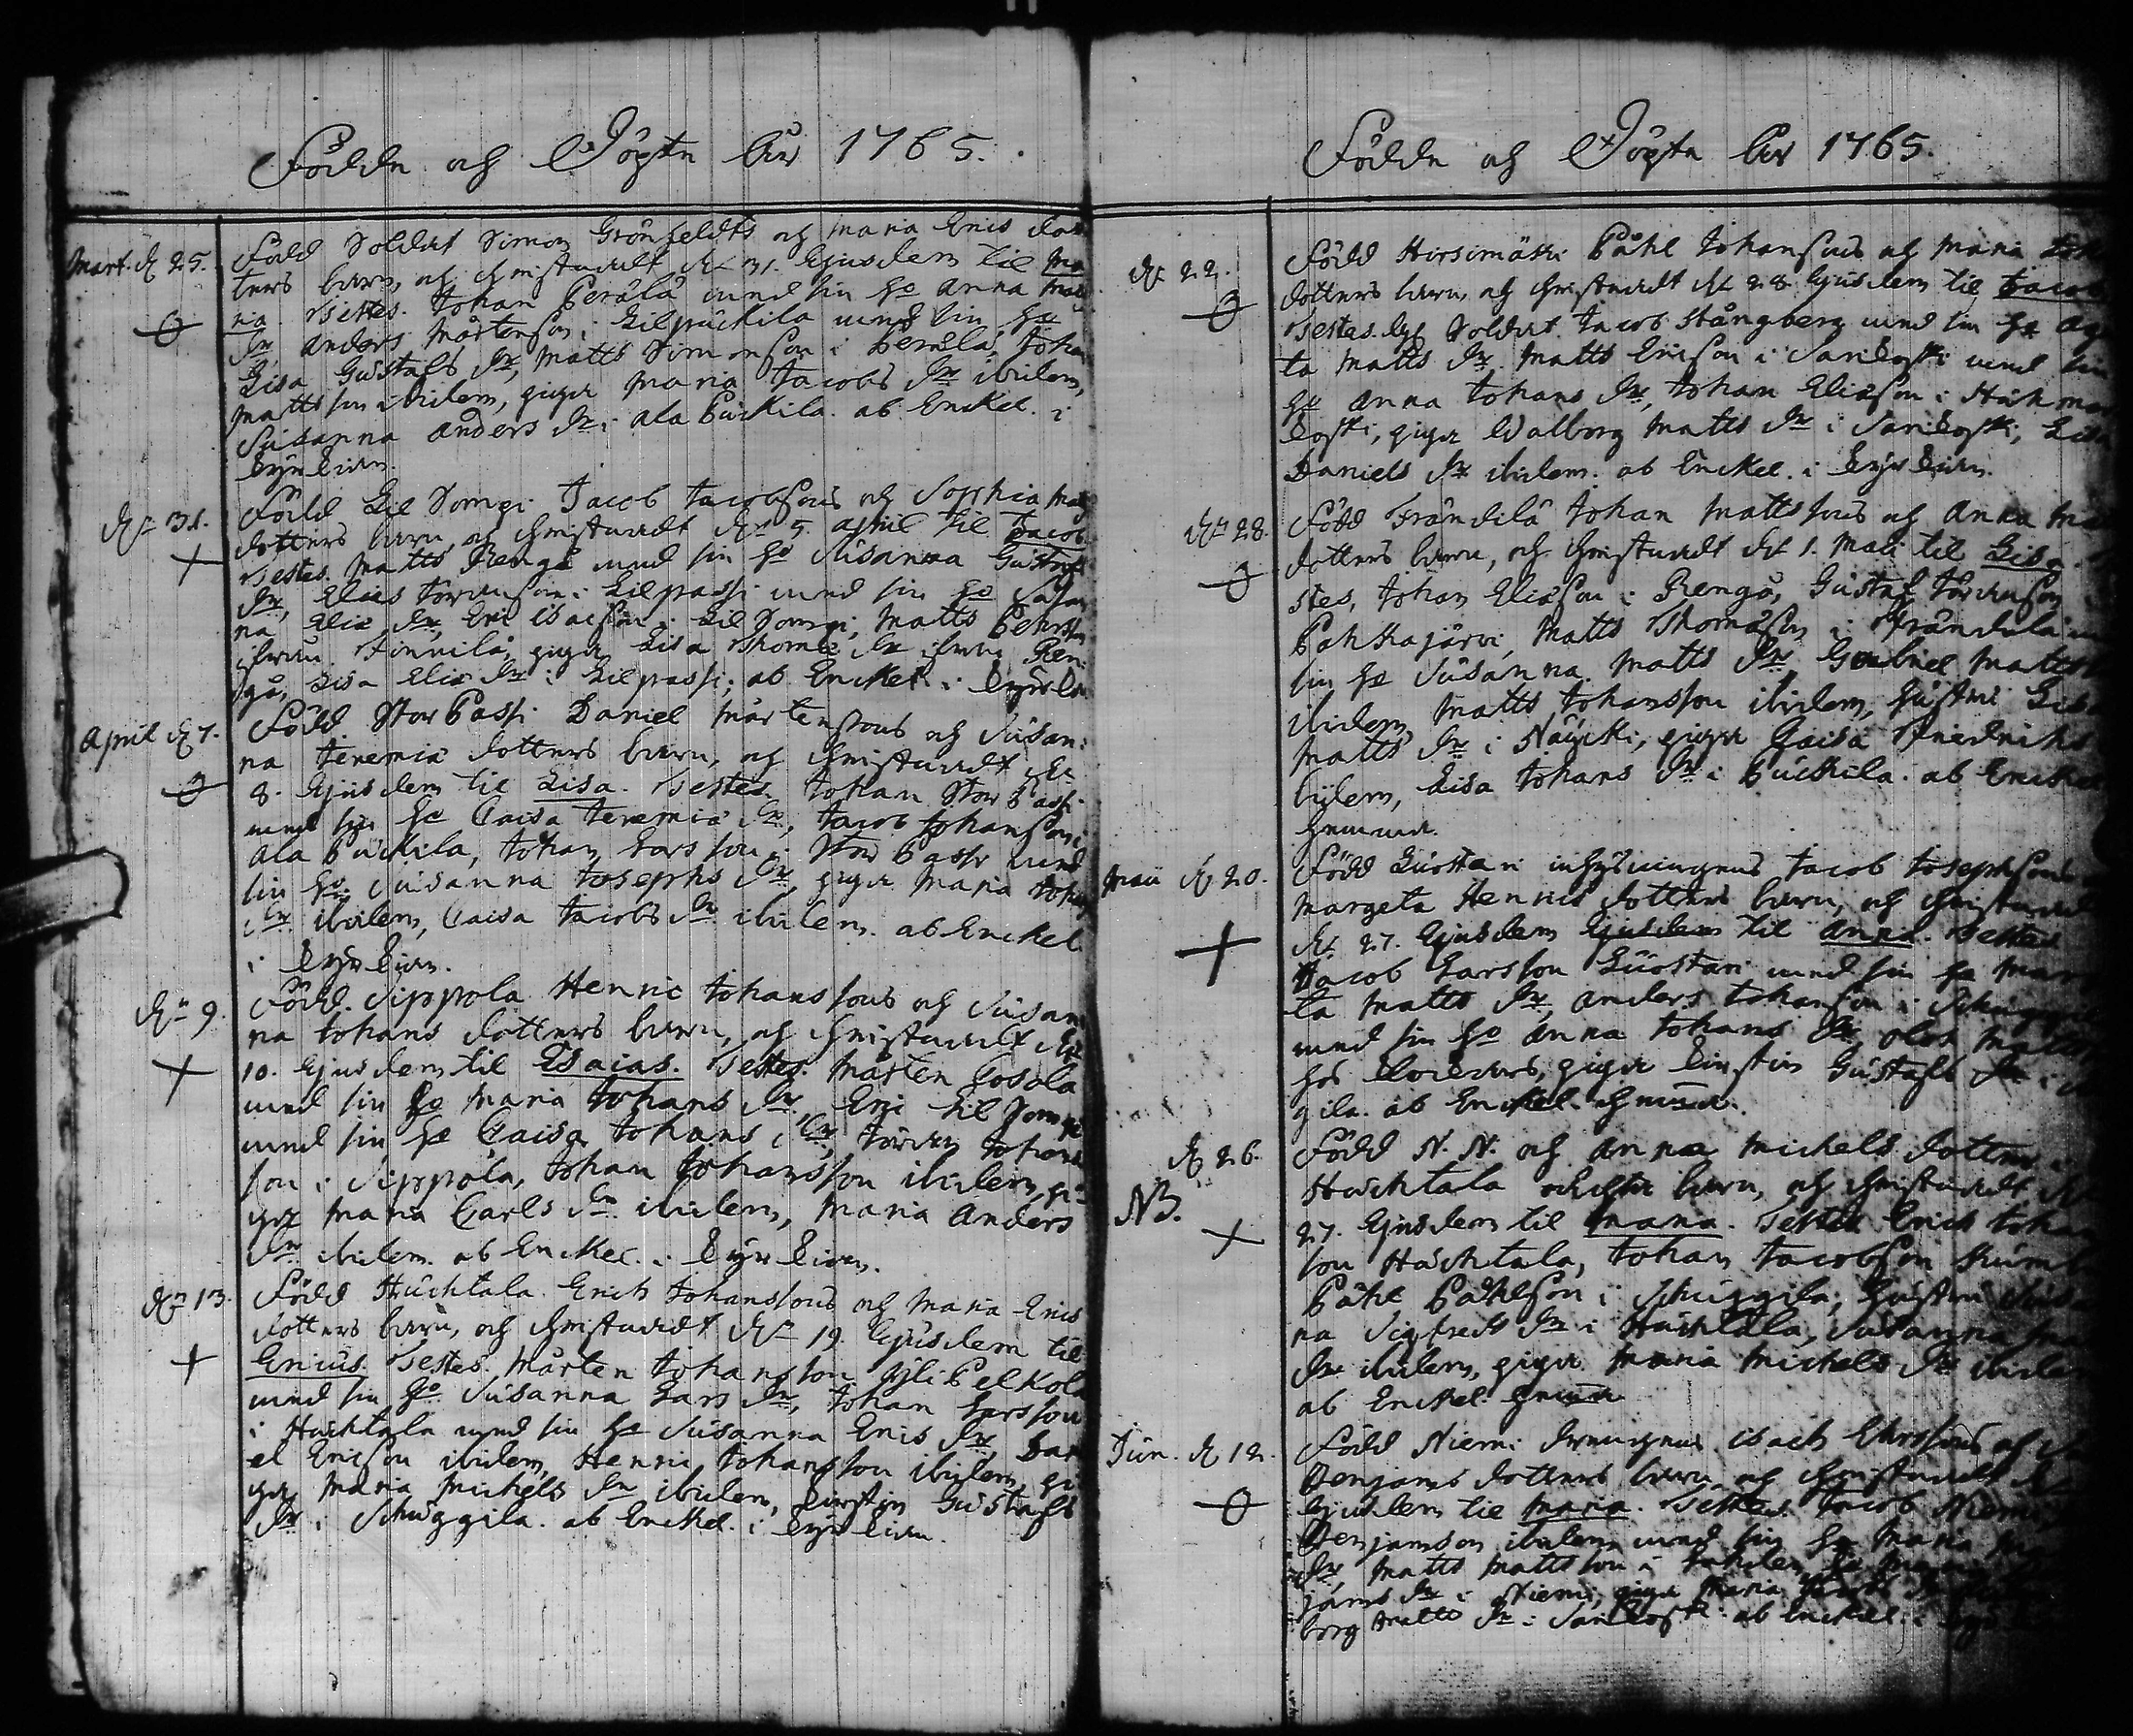 Födde och Döpte åhr 1765.
Mart. d. 25. Född Soldat Simon Grönfeldts och Maria Erics dot-
ters barn, och christnadt d. 31. Ejusdem til Ma-
ria. Testes. Johan Perälä med sin h:o Anna Matts
Dr, Anders Mårtenson i Lilpuckila med sin h:o
Lisa Gustafs Dr, Matts Simonson i Perälä, Johan
Mattsson ibidem, pigor Maria Jacobs Dr ibidem,
Susanna Anders Dr i Ala Puckila. ab Enckel. i
Kyrkian.
d. 31. Född Lil Sompi Jacob Jacobsons och Sophia Matts
dotters barn, och christnadt d. 5. April til Jacob
Testes. Matts Rengå med sin h:o Susanna Gustafs
Dr, Elias Jöranson i Lilpassi med sin h:o Susan-
na Eliæ Dr, Eric Isacson i Lil Sompi, Matts Pehrsson
ifrån Finnilä, pigor Lisa Thomæ Dr ifrån Ren-
gå, Lisa Eliæ Dr i Lilpassi; ab Enckel. i Kyrkian
April d. 7. Född. Stor Passi Daniel Mårtensons och Susan-
na Jeremiæ dotters barn, och christnadt d.
8. Ejusdem til Lisa. Testes. Johan Stor Passi
med sin h:o Caisa Jeremiæ Dr, Jacob Johanson i
Ala Puckila, Johan Larsson i Stor Passi med
sin h:o Susanna Josephs Dr, pigor Maria Johans
Dr ibidem, Caisa Jacobs Dr ibidem. ab Enckel.
i Kyrkian.
d. 9. Född. Sippola Henric Johanssons och Susan-
na Johans dotters barn, och christnadt d.
10. Ejusdem til Esaias. Testes. Mårten Cosola
med sin h:o Maria Johans Dr, Eric Lil Sompi
med sin h:o Caisa Johans Dr, Jöran Johans
son i Sippola, Johan Johansson ibidem, pi-
gor Maria Carls Dr ibidem, Maria Anders
Dr ibidem. ab Enckel. i Kyrkian.
d. 13. Född Huchtala Erich Johanssons och Maria Erics
dotters barn, och christnadt d. 19. Ejusdem til
Ericus. Testes. Mårten Johansson Yli Pelkola
med sin h:o Susanna Lars Dr, Johan Larsson
i Huchtala med sin h:o Susanna Erics Dr, Dani
el Ericson ibidem, Henric Johansson ibidem, pi-
gor Maria Michels Dr ibidem, Kirstin Gustafs
Dr i Schuggila. ab Enckel. i Kyrkian.
Födde och Döpte åhr 1765.
d. 22. Född Hirsimäki Påhl Johansons och Maria Joh
dotters barn, och christnadt d. 28. Ejusdem til Jacob
Testes. Soldat Jacob Stångberg med sin h:o Aga
ta Matts Dr. Matts Ericson i Sarikoski med sin
h:o Anna Johans Dr, Johan Eliason i
koski, pigor Walborg Matts Dr i Sarikoski, Lisa
Daniels Dr ibidem. ab Enckel. i Kyrkian.
d. 28. Född Frändilä Johan Mattssons och Anna Ma
dotters barn, och christnadt d. 1. Maii til Lisa.
stes, Johan Eliason i Rengå, Gustaf Jöranson i
Pahkajärvi, Matts Thomason i Frändilä
sin h:o Susanna Matts Dr, Gabriel Matts
ibidem, Matts Johansson ibidem, hustru Lisa
Matts Dr i Näycki, pigor Caisa Fredrichs
bidem, Lisa Johans Dr i Puckila. ab Enckel
hemma.
Maii d. 20. Född Luostari inhysingens Jacob Josephsons
Margeta Henrics dotters barn, och christnadt
d. 27. Ejusdem Ejusdem til Anna. Testes
Jacob Larsson Luostari med sin h:o Marg
ta Matts Dr, Anders Johanson i Schuggila
med sin h:o Anna Johans Dr, Olof Matts
hos, pigor Kirstin Gustafs Dr i
gila. ab Enckel. hemma.
d. 26. Född N. N. och Anna Michels dotter i
NB. Huchtala oächta barn, och christnadt d.
27. Ejusdem til Maria. Testes Erich Johan
son Huchtala, Johan Jacobson
Påhl Påhlson i Schuggila, hustru Susan
na Sigfreds Dr i Huchtala, Susanna
Dr ibidem, pigor Maria Michels Dr ibidem
ab Enckel hemma
Jun. d. 12. Född Niemi Isach och
Benjams dotters barn och christnadt d.
Ejusdem til Maria. Testes. Jacob Niemi
Benjamson ibidem med sin h:o Maria
Dr, Matts Mattsson i
jams Dr i Niemi, pigor Maria
borg Matts Dr i Sarikoski. ab Enckel. i